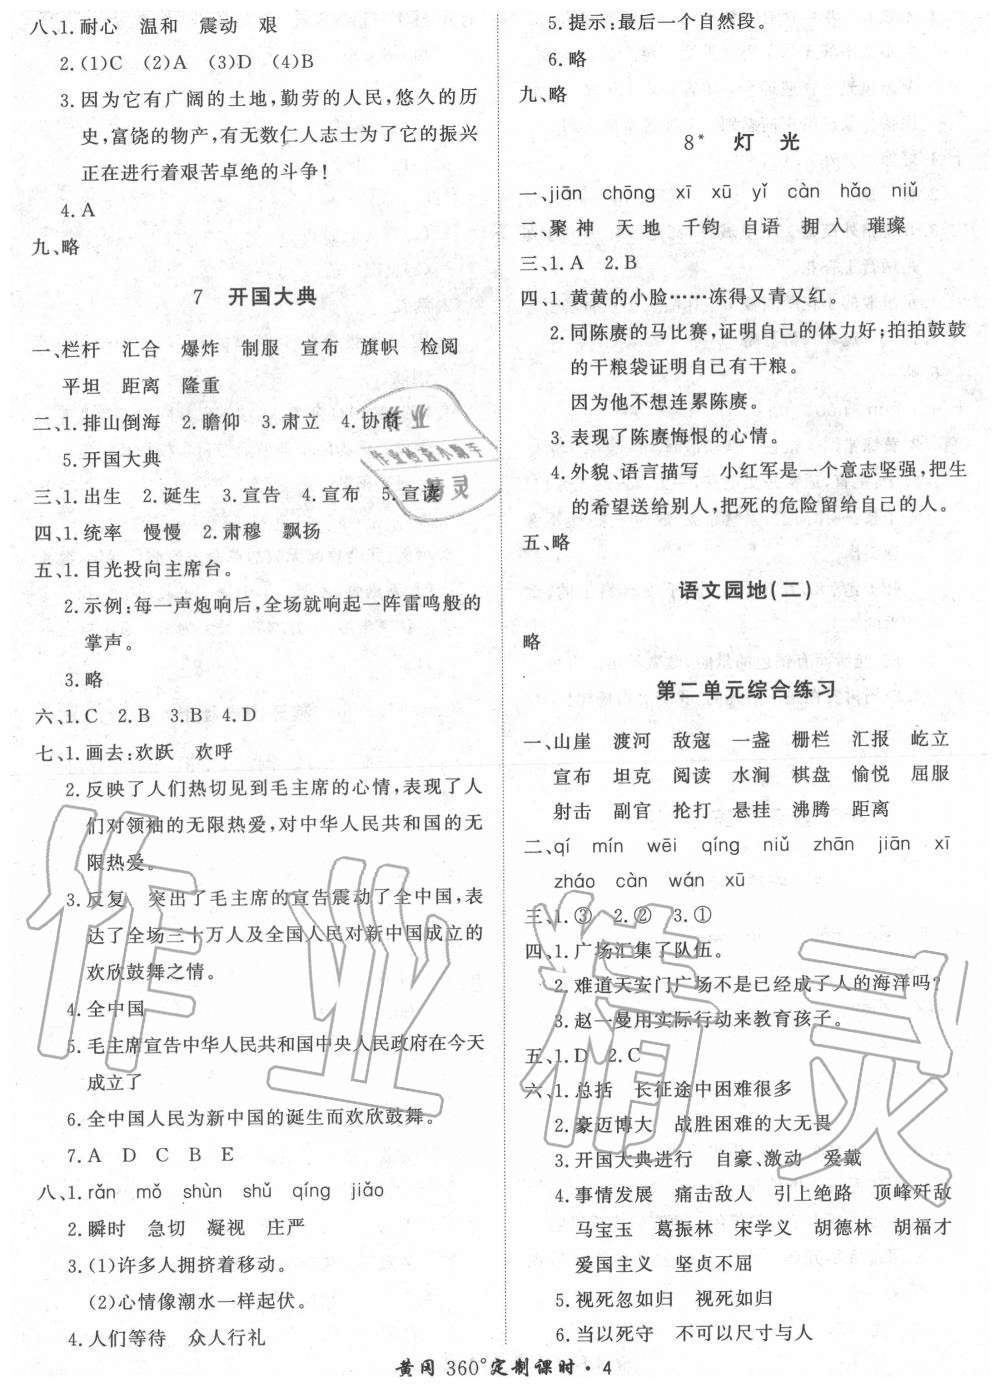 八、1.耐心 温和 震动 艰
2.(1)C (2)A (3)D (4)B
3.因为它有广阔的土地,勤劳的人民,悠久的历
史,富饶的物产,有无数仁人志士为了它的振兴
正在进行着艰苦卓绝的斗争!
4.A
九、略
7 开国大典
一、栏杆 汇合 爆炸 制服 宣布 旗帜 检阅
平坦 距离 隆重
二、1.排山倒海 2.瞻仰 3.肃立 4.协商
5.开国大典
三、1.出生 2.诞生 3.宣告 4.宣布 5.宣读
四、1.统率 慢慢 2.肃穆 飘扬
五、1.目光投向主席台。
2.示例:每一声炮响后,全场就响起一阵雷鸣般的
掌声。
3.略
六、1.C 2.B 3.B 4.D
七、1.画去:欢跃 欢呼
2.反映了人们热切见到毛主席的心情,表现了人
们对领袖的无限热爱,对中华人民共和国的无
限热爱。
3.反复 突出了毛主席的宣告震动了全中国,表
达了全场三十万人及全国人民对新中国成立的
欢欣鼓舞之情。
4.全中国
5.毛主席宣告中华人民共和国中央人民政府在今天
成立了
6.全中国人民为新中国的诞生而欢欣鼓舞。
7.A D C B E
八、1.rǎn mǒ shùn shǔ qíng jiǎo
2.瞬时 急切 凝视 庄严
3.(1)许多人拥挤着移动。
(2)心情像潮水一样起伏。
4.人们等待 众人行礼
5.提示:最后一个自然段。
6.略
九、略
8* 灯光
一、jiān chōng xī xū yǐ càn hǎo niǔ
二、聚神 天地 千钧 自语 拥入 璀璨
三、1.A 2.B
四、1.黄黄的小脸……冻得又青又红。
2.同陈赓的马比赛,证明自己的体力好;拍拍鼓鼓
的干粮袋证明自己有干粮。
因为他不想连累陈赓。
3.表现了陈赓悔恨的心情。
4.外貌、语言描写 小红军是一个意志坚强,把生
的希望送给别人,把死的危险留给自己的人。
五、略
语文园地(二)
略
第二单元综合练习
一、山崖 渡河 敌寇 一盏 栅栏 汇报 屹立
宣布 坦克 阅读 水涧 棋盘 愉悦 屈服
射击 副官 抡打 悬挂 沸腾 距离
二、qí mín wēi qíng niǔ zhān jiān xī
zháo càn wán xū
三、1.③ 2.② 3.①
四、1.广场汇集了队伍。
2.难道天安门广场不是已经成了人的海洋吗?
3.赵一曼用实际行动来教育孩子。
五、1.D 2.C
六、1.总括 长征途中困难很多
2.豪迈博大 战胜困难的大无畏
3.开国大典进行 自豪、激动 爱戴
4.事情发展 痛击敌人 引上绝路 顶峰歼敌
马宝玉 葛振林 宋学义 胡德林 胡福才
爱国主义 坚贞不屈
5.视死忽如归 视死如归
6.当以死守 不可以尺寸与人
黄冈360°定制课时·4
作业
作业检查小助手
精灵
作业精灵